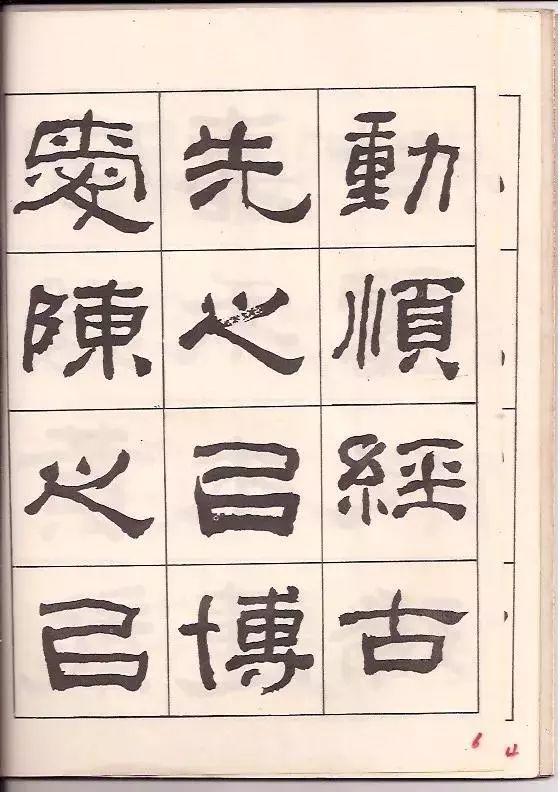 動順經古
先之以博
愛陳之以
6
4